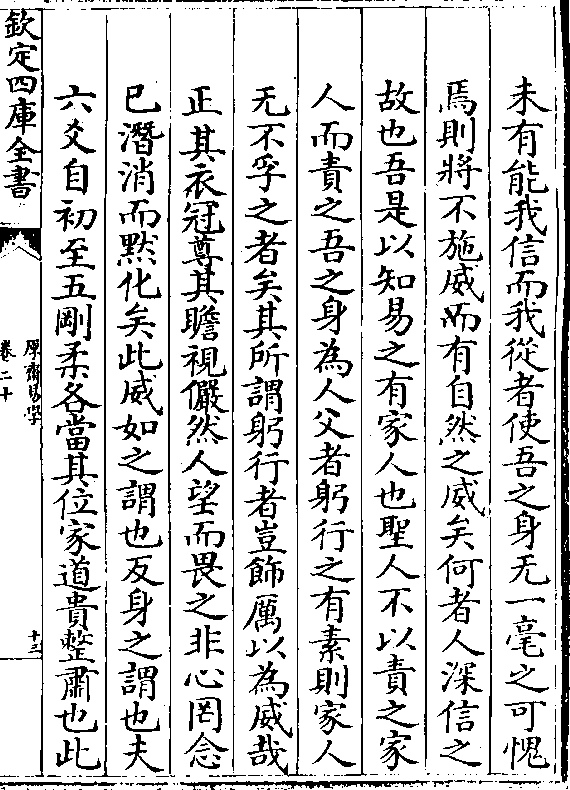 未有能我信而我從者使吾之身无一毫之可愧
焉則將不施威而有自然之威矣何者人深信之
故也吾是以知易之有家人也聖人不以責之家
人而責之吾之身為人父者躬行之有素則家人
无不孚之者矣其所謂躬行者豈飾厲以為威哉
正其衣冠尊其瞻視儼然人望而畏之非心罔念
已潛消而默化矣此威如之謂也反身之謂也夫
六爻自初至五剛柔各當其位家道貴整肅也此
欽定四庫全書
厚齋易學
卷二十
十三